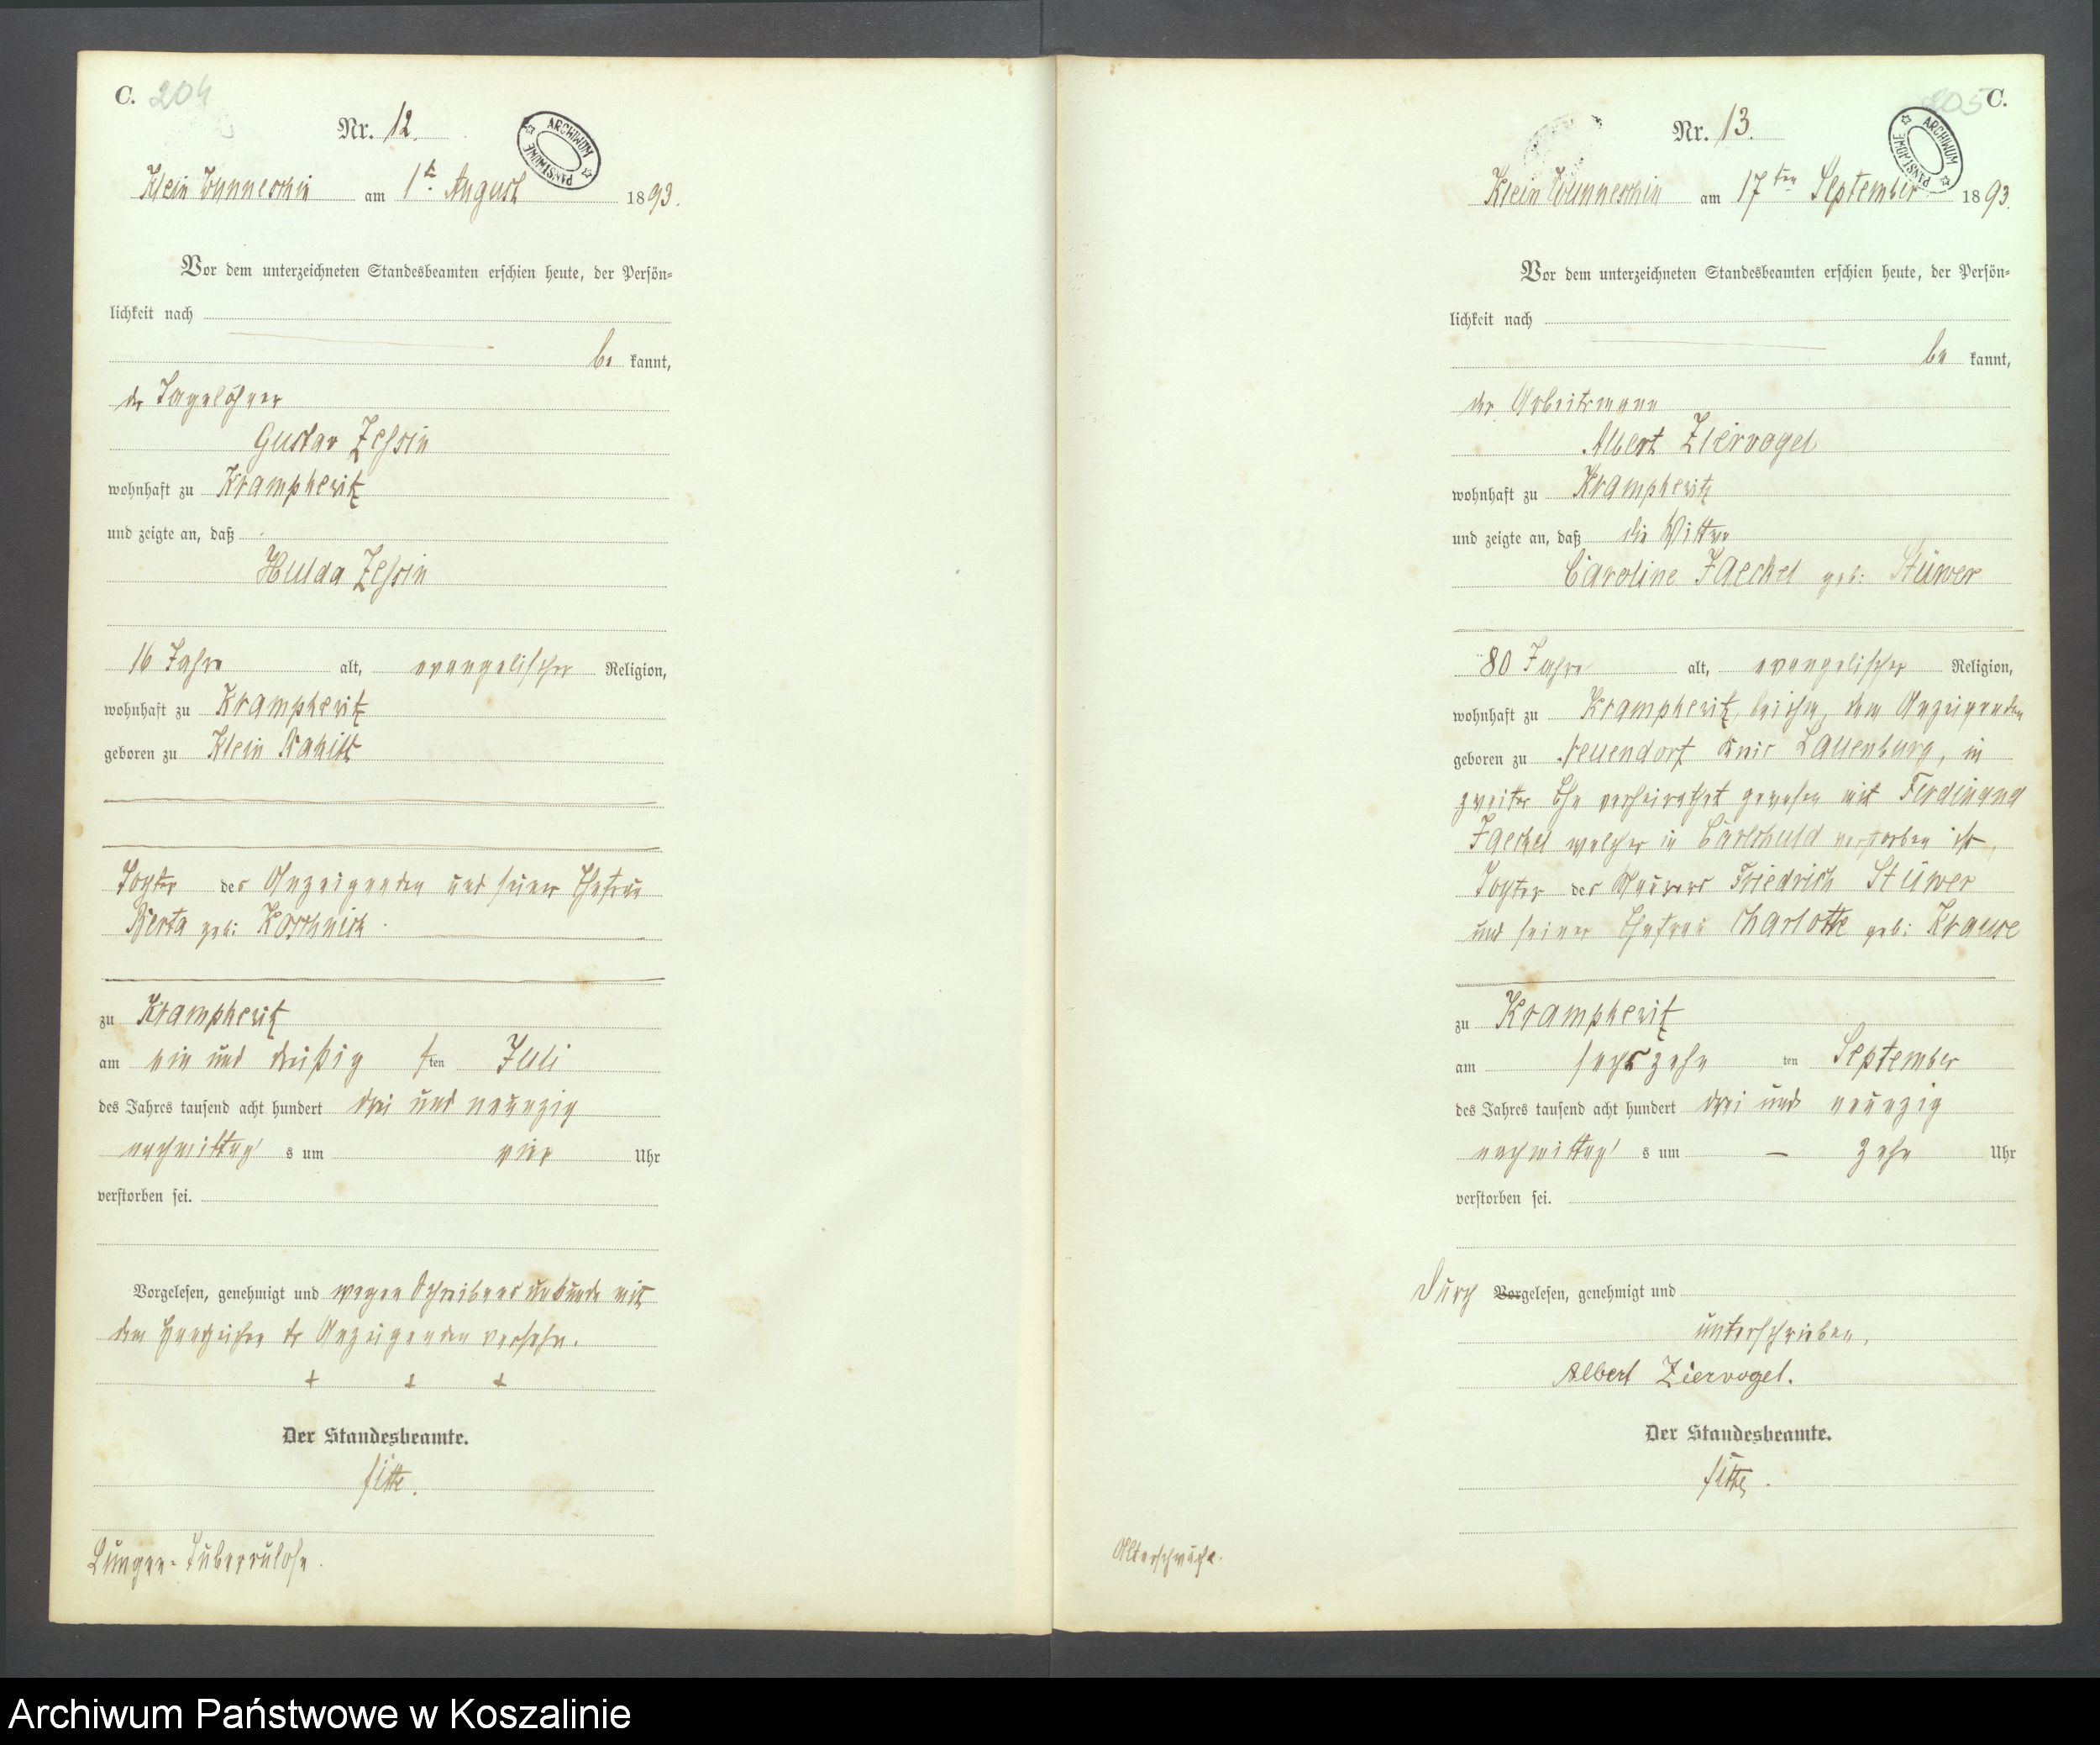 C. 204
Nr. 12.
Klein Wunneschin am 1t. August 1893.
ARCHIWUM PAŃSTWOWE
Vor dem unterzeichneten Standesbeamten erschien heute, der Persön-
lichkeit nach
be kannt,
der Tagelöhner
Gustav Zessin
wohnhaft zu Krampkewitz
und zeigte an, daß
Hulda Zessin
16 Jahre alt, evangelischer Religion,
wohnhaft zu Krampkewitz
geboren zu Klein
Tochter des Anzeigenden und seiner Ehefrau
Berta geb: Koschnick.
zu Krampkewitz
am ein und dreißig sten Juli
des Jahres tausend acht hundert drei und neunzig
nachmittag s um vier Uhr
verstorben sei.
Vorgelesen, genehmigt und wegen Schreibens unkunde mit
dem Handzeichen des Anzeigenden versehn.
+ + +
Der Standesbeamte.
Lungen-Tuberculose.
205 C.
Nr. 13.
Klein Wunneschin am 17ten September 1893.
ARCHIWUM PAŃSTWOWE
Vor dem unterzeichneten Standesbeamten erschien heute, der Persön-
lichkeit nach
be kannt,
der Arbeitsmann
Albert Ziervogel
wohnhaft zu Krampkewitz
und zeigte an, daß die Wittwe
Caroline Jaeckel geb: Stüwer
80 Jahre alt, evangelischer Religion,
wohnhaft zu Krampkewitz, bei ihm, dem Anzeigenden
geboren zu Neuendorf Kreis Lauenburg, in
zweiter Ehe verheirathet gewesen mit Ferdinand
Jaeckel welcher in verstorben ist,
Tochter des Friedrich Stüwer
und seiner Ehefrau Charlotte geb: Krause
zu Krampkewitz
am sechszehn ten September
des Jahres tausend acht hundert drei und neunzig
nachmittag s um — zehn Uhr
verstorben sei.
Durch Vorgelesen, genehmigt und
unterschrieben,
Albert Ziervogel.
Der Standesbeamte.
Altersschwäche.
Archiwum Państwowe w Koszalinie